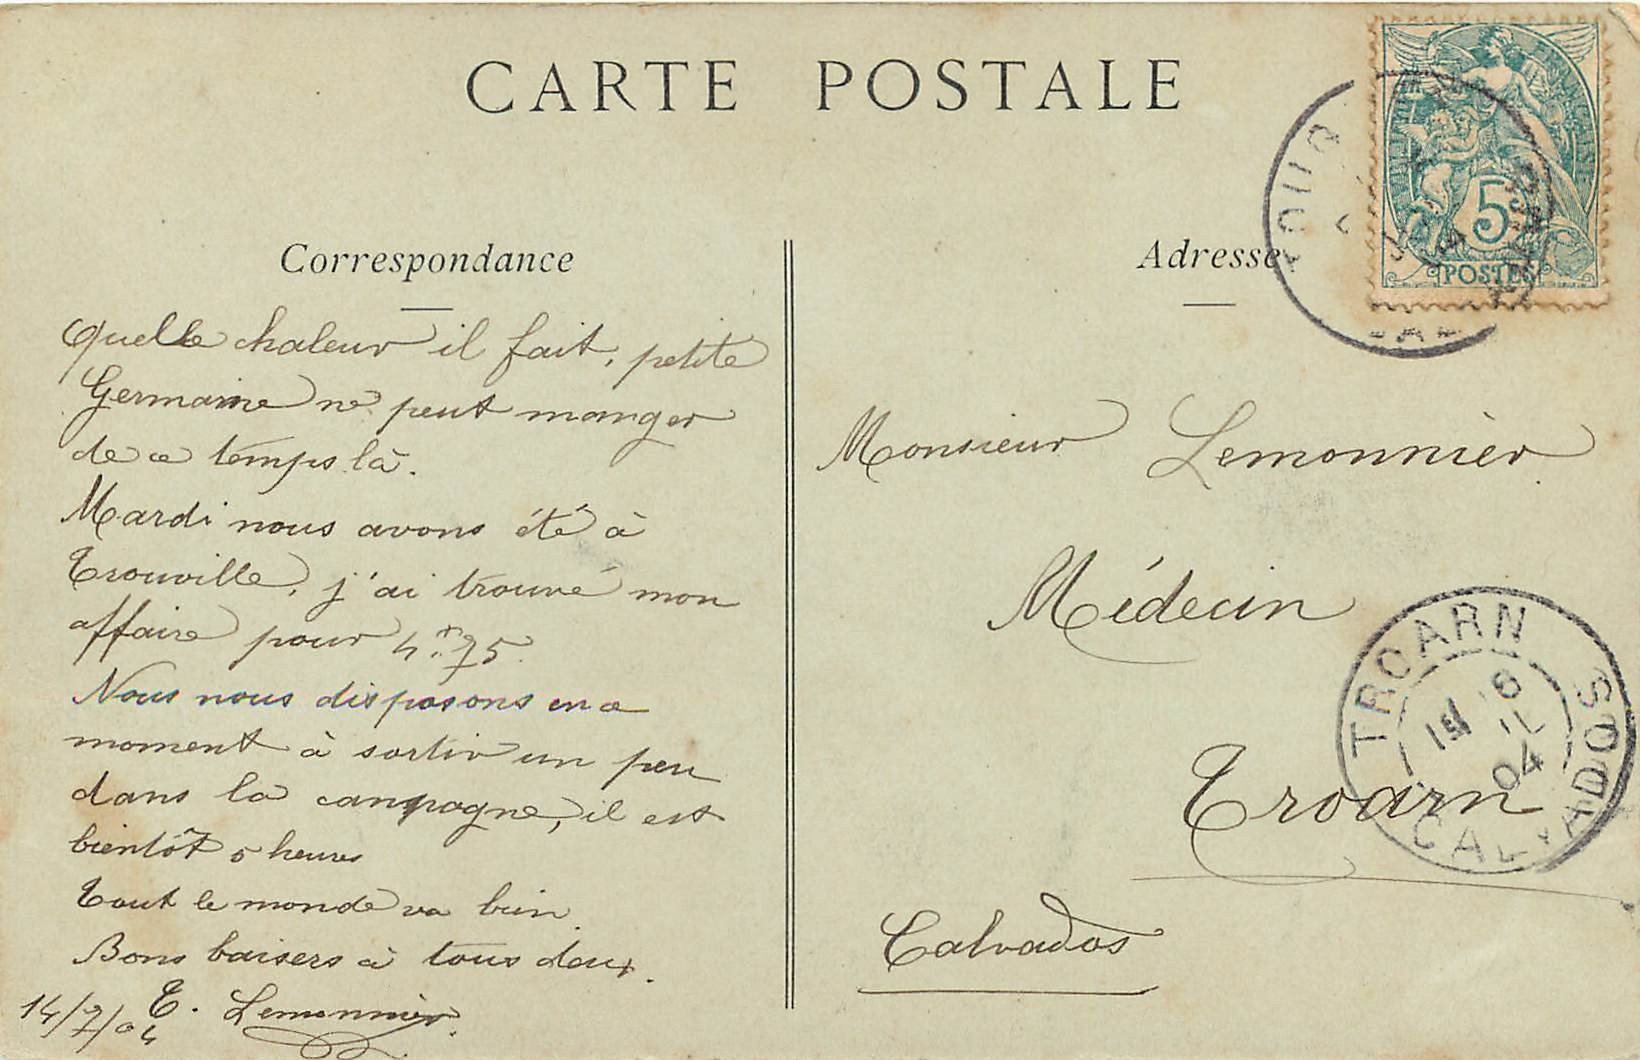 CARTE POSTALE
Correspondance
Quelle chaleur il fait, petite
Germaine ne peut manger
de ce temps là.
Mardi nous avons été à
Trouville, j'ai trouvé mon
affaire pour 4fr. 75.
Nous nous disposons en ce
moment à sortir un peu
dans la campagne, il est
bientôt 5 heures
Tout le monde va bien
Bons baisers à tous deux.
14/7/04 E. Lemonnier.
Adresse
Monsieur Lemonnier
Médecin
Troarn
Calvados
5c
POSTES
TROARN
16
JUIL
04
CALVADOS